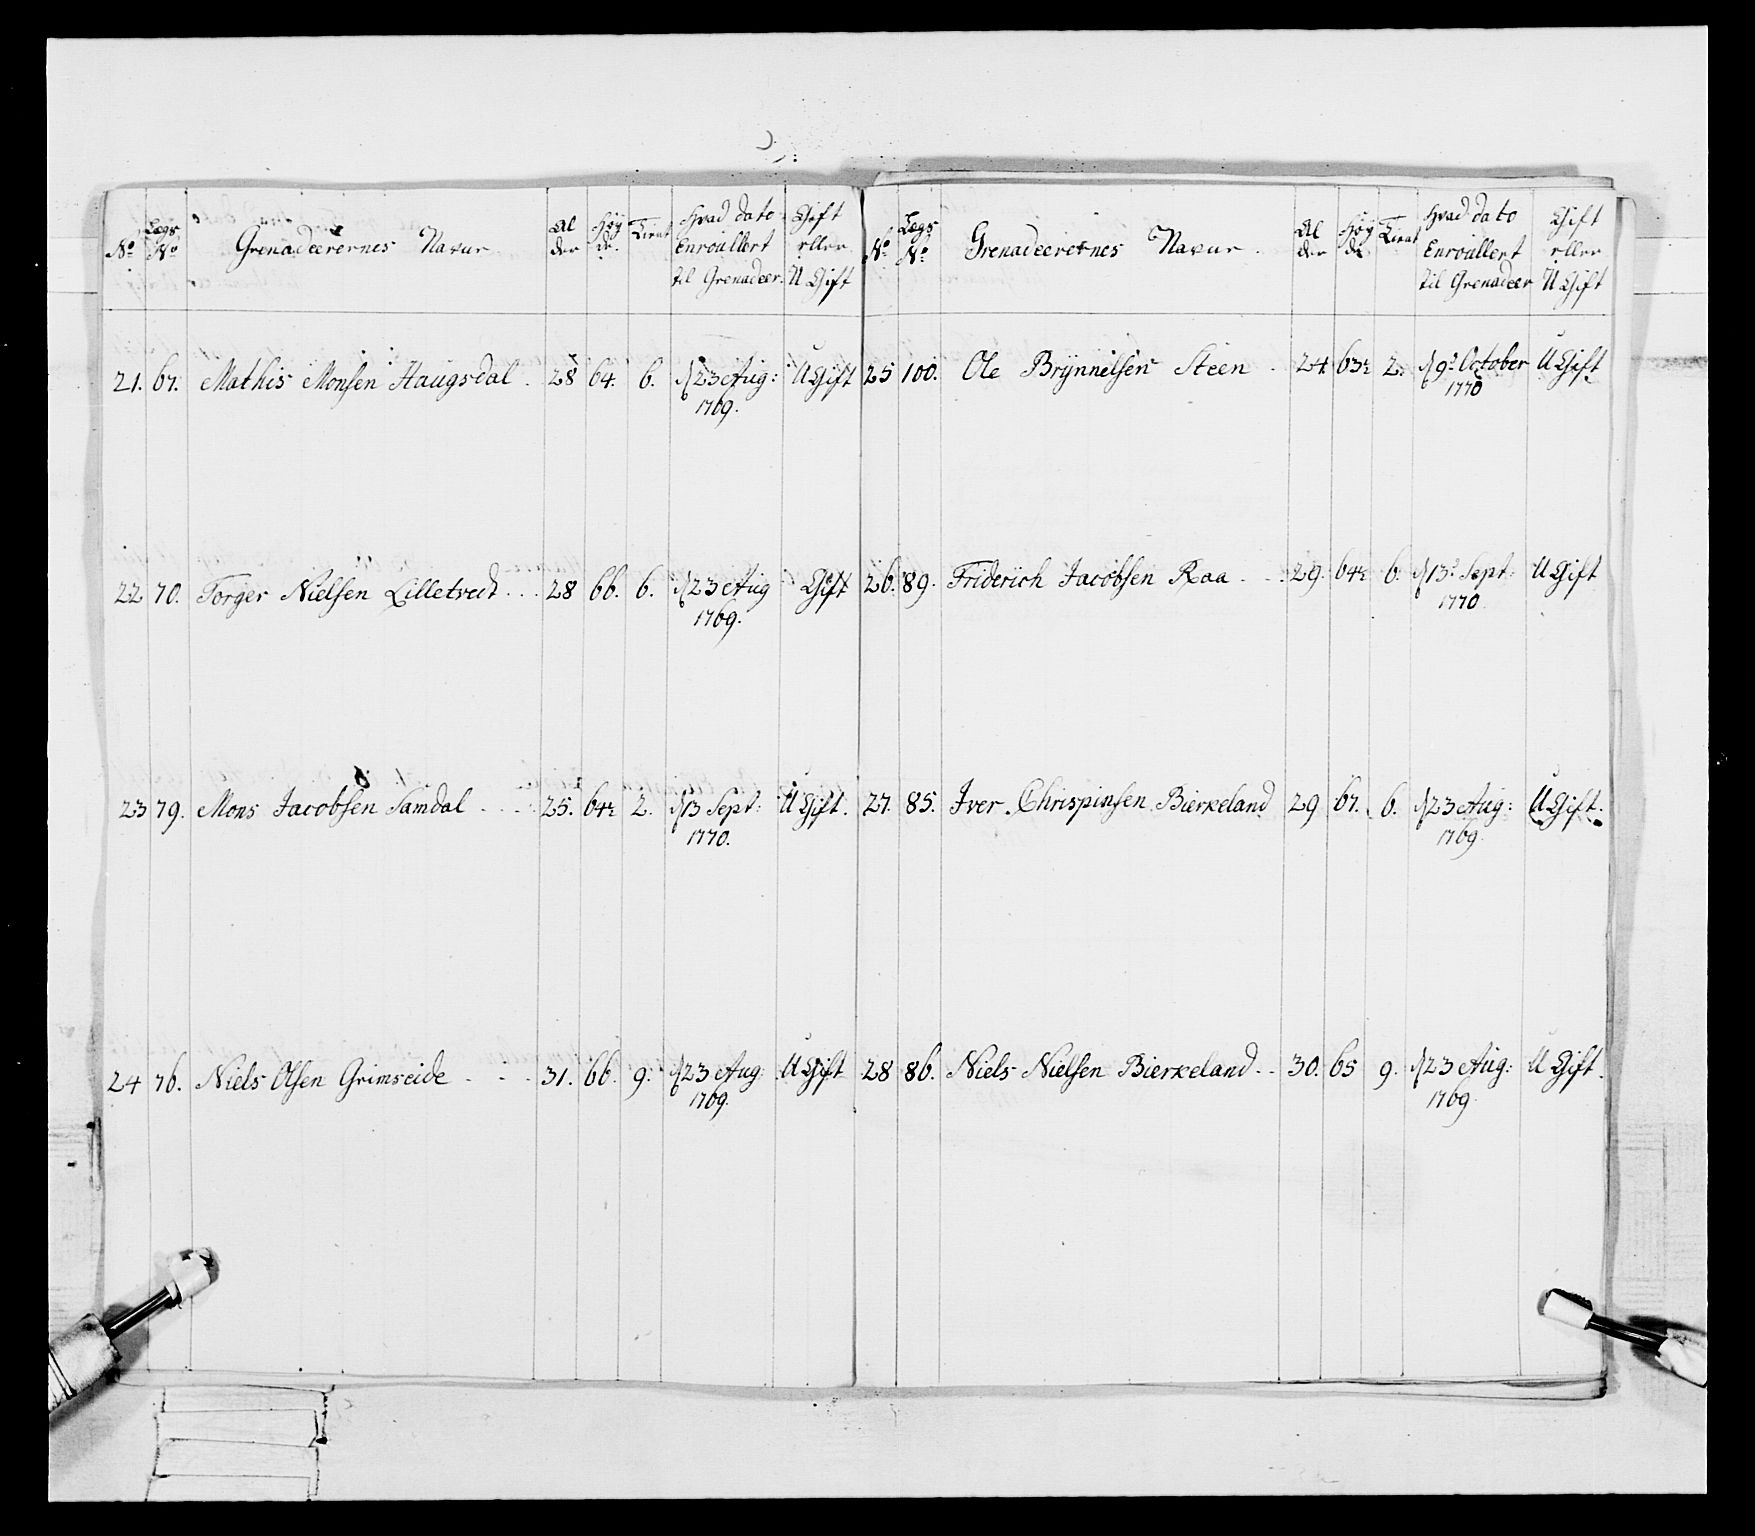 No Lægs No Grenadeerernes Navne Al der Høy de. Tient Hvad dato Enroullert til Grenadeer. Gift eller U Gift
21. 67. Mathis Monsen Haugsdal. 28 64. 6. d 23 Aug: 1769. U Gift
22 70. Torger Nielsen Lilletvedt... 28 66. 6. d 23 Aug 1769. Gift
23 79. Mons Jacobsen Samdal 25. 64½ 2. d 13 Sept: 1770. U Gift.
24 76. Niels Olsen Grimseide 31. 66. 9. d 23 Aug: 1769. U Gift
No Lægs No Grenadeerernes Navne Al der Høy de Tient Hvad dato Enroullert til Grenadeer Gift eller U Gift
25 100. Ole Brynnilsen Steen 24 63½ 2. d 9de October 1770 U Gift
26. 89. Friderich Jacobsen Raa 29. 64½ 6. d 13de Sept: 1770. U Gift
27. 85. Iver Chrispinsen Bierkeland 29 67. 6. d 23 Aug: 1769 U Gift.
28 86. Niels Nielsen Bierkeland 30. 65 9. d 23 Aug: 1769. U Gift.